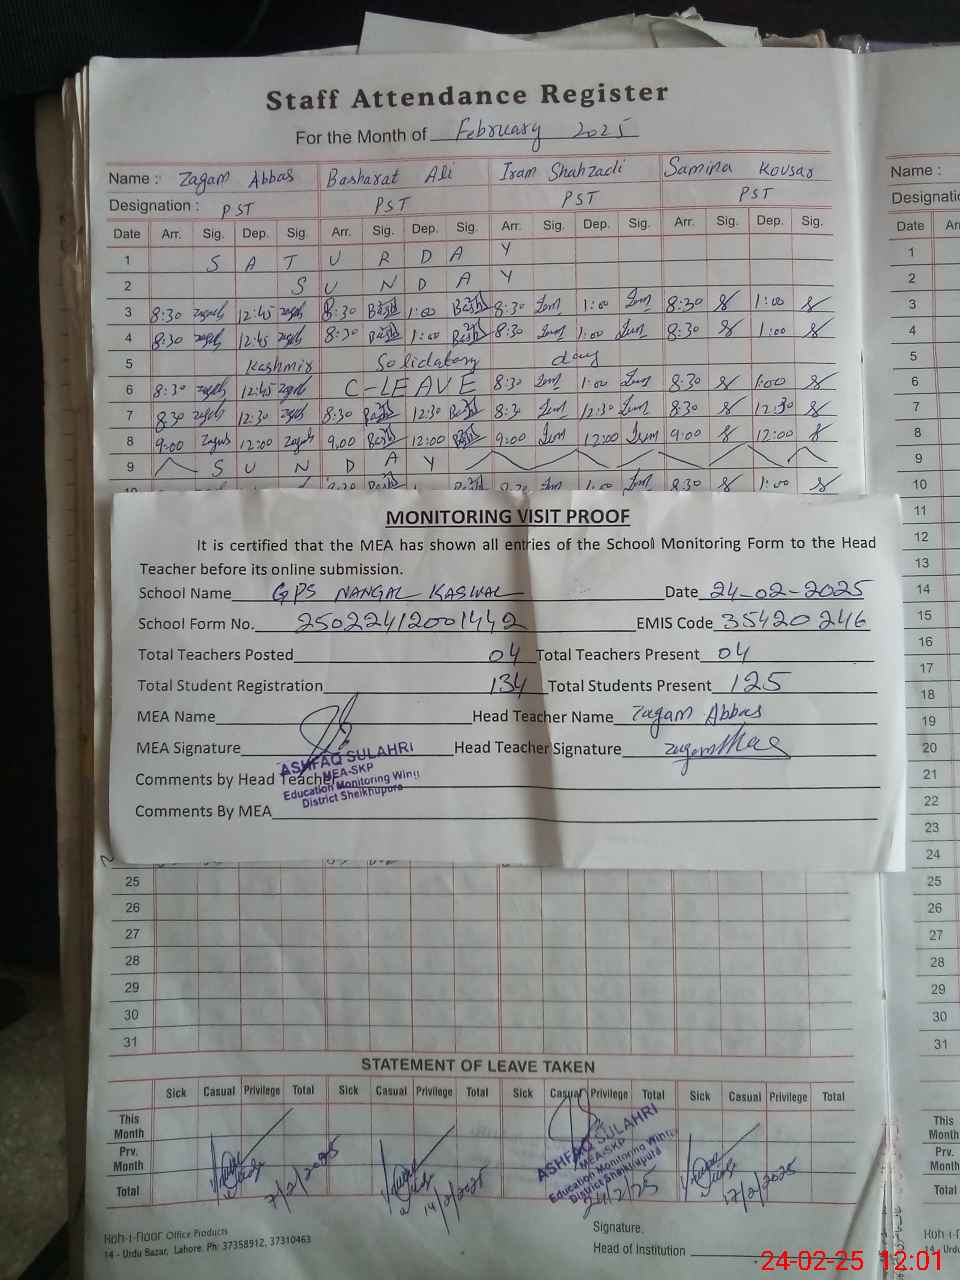 Staff Attendance Register
For the Month of February 2025
Name : Zagam Abbas Basharat Ali Iram Shahzadi Samina Kousar
Designation : PST PST PST PST
Date Arr. Sig. Dep. Sig. Arr. Sig. Dep. Sig. Arr. Sig. Dep. Sig. Arr. Sig. Dep. Sig.
1 S A T U R D A Y
2 S U N D A Y
3 8:30 12:45 8:30 1:00 8:30 1:00 8:30 1:00
4 8:30 12:45 8:30 1:00 8:30 1:00 8:30 1:00
5 Kashmir Solidatory day
6 8:30 12:45 C-LEAVE 8:30 1:00 8:30 1:00
7 8:30 12:30 8:30 12:30 8:3 12:30 8:30 12:30
8 9:00 12:00 9:00 12:00 9:00 12:00 9:00 12:00
9 S U N D A Y
10 8:30 1:00
MONITORING VISIT PROOF
It is certified that the MEA has shown all entries of the School Monitoring Form to the Head
Teacher before its online submission.
School Name GPS NANGAL KASWAL Date 24-02-2025
School Form No. 25022412001442 EMIS Code 35420246
Total Teachers Posted 04 Total Teachers Present 04
Total Student Registration 134 Total Students Present 125
MEA Name Head Teacher Name Zagam Abbas
MEA Signature Head Teacher Signature
ASHFAQ SULAHRI
MEA-SKP
Education Monitoring Wing
District Sheikhupura
Comments by Head Teacher
Comments By MEA
25
26
27
28
29
30
31
STATEMENT OF LEAVE TAKEN
Sick Casual Privilege Total Sick Casual Privilege Total Sick Casual Privilege Total Sick Casual Privilege Total
This Month
Prv. Month
Total
7/2/2025 14/2/2025
ASHFAQ SULAHRI
MEA-SKP
Education Monitoring Wing
District Sheikhupura
24/2/25
17/2/2025
Koh-i-Noor Office Products
14 - Urdu Bazar, Lahore. Ph: 37358912, 37310463
Signature.
Head of Institution
Name :
Designation
Date
1
2
3
4
5
6
7
8
9
10
11
12
13
14
15
16
17
18
19
20
21
22
23
24
25
26
27
28
29
30
31
This
Month
Prv.
Month
Total
24-02-25 12:01